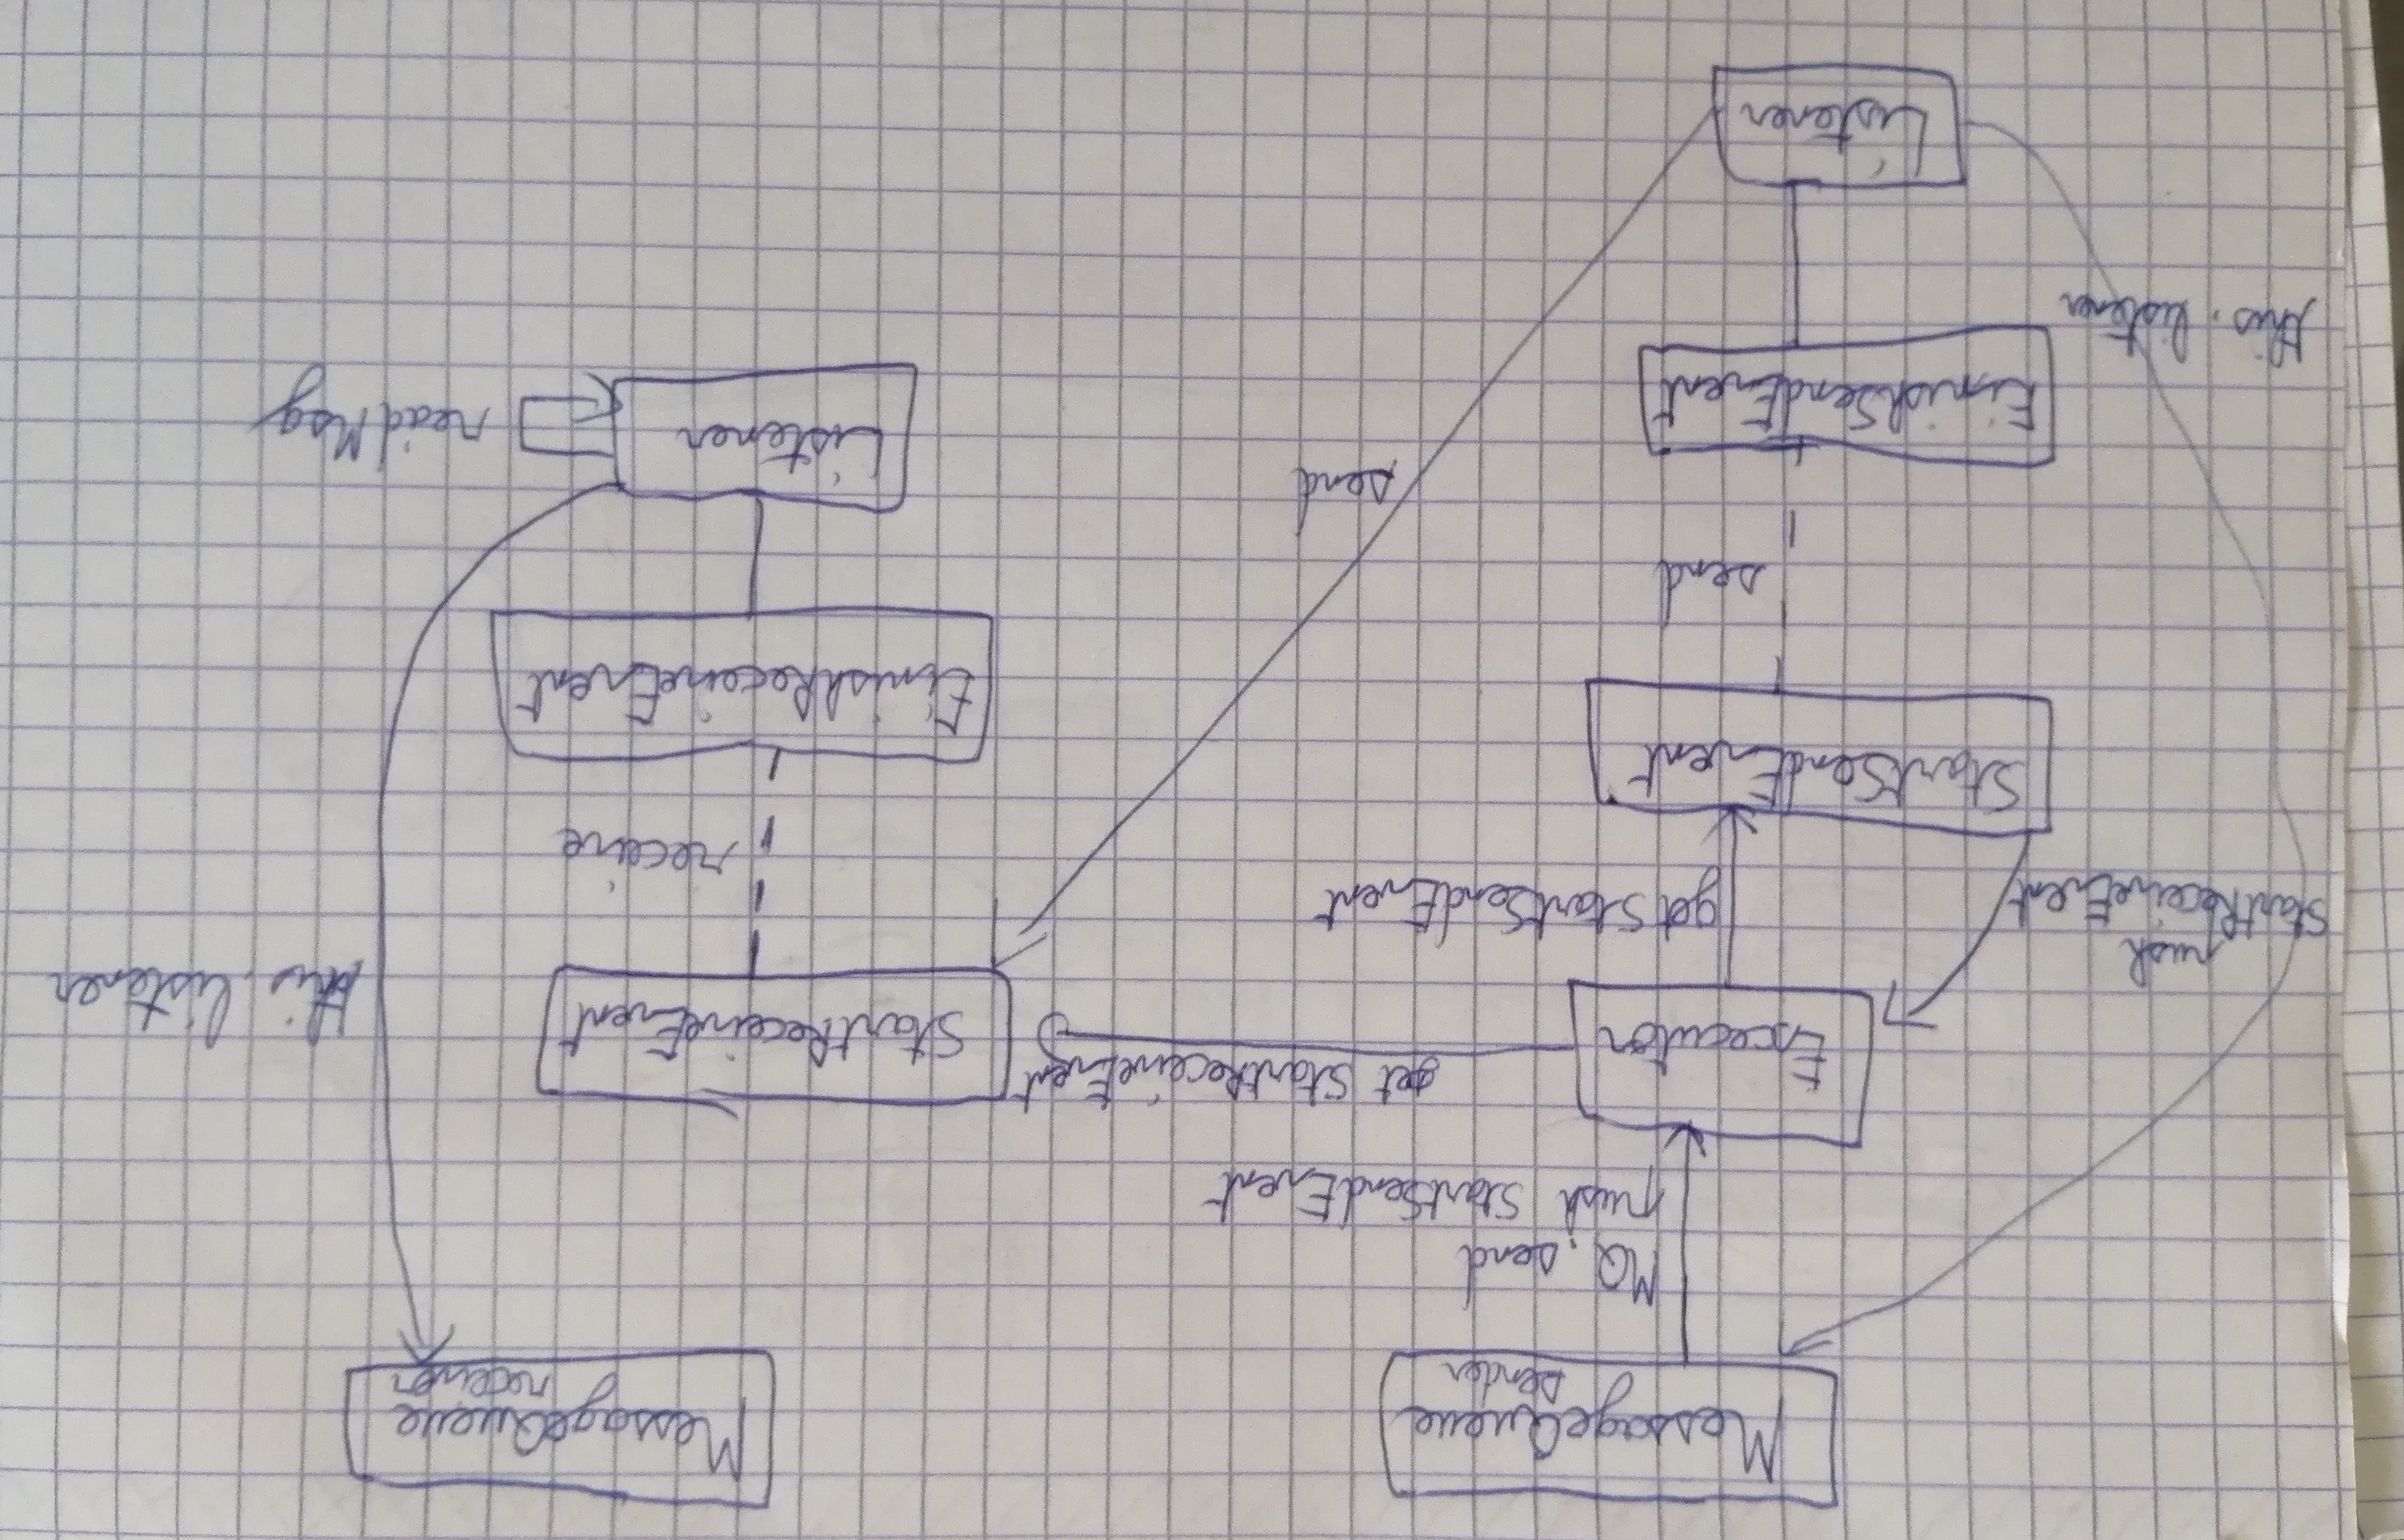 MessageQueue
sender
MessageQueue
receiver
MQ.send
push StartSendEvent
Executor
get StartReceiveEvent
StartReceiveEvent
this.listener
push
StartReceiveEvent
get StartSendEvent
receive
StartSendEvent
FinishReceiveEvent
send
send
Listener
read Msg
FinishSendEvent
this.listener
Listener